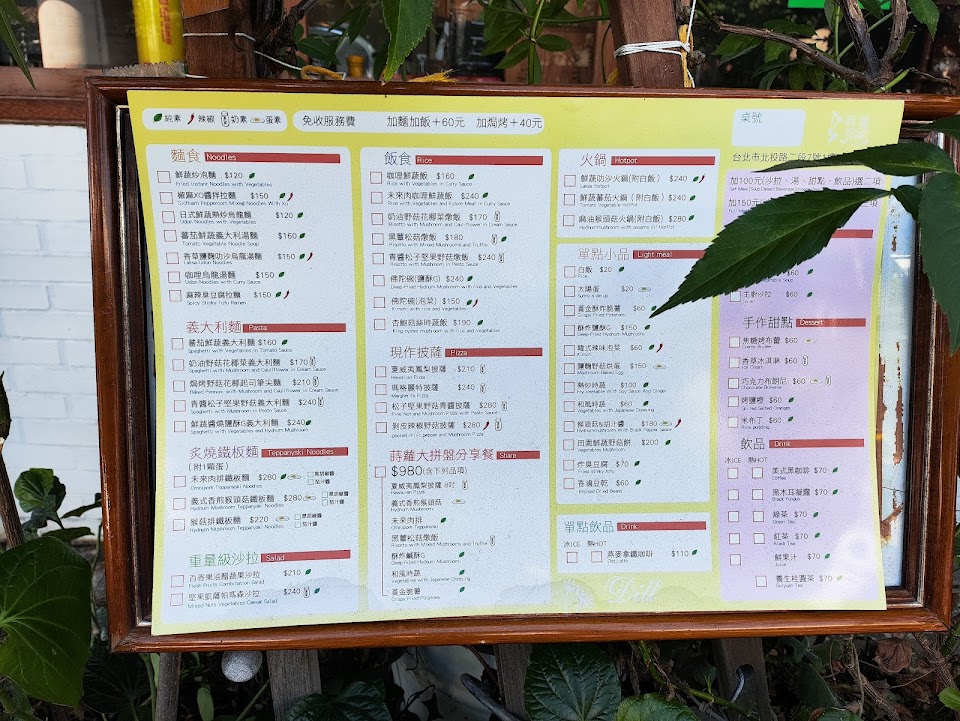 純素 辣椒 奶素 蛋素
免收服務費 加麵加飯+60元 加焗烤+40元
桌號
台北市北投路二段
加100元(沙拉、湯、甜點、飲品)選二項
麵食 Noodles
鮮蔬炒泡麵 $120
Fried Instant Noodles with Vegetables
椒麻XO醬拌拉麵 $150
Sichuan Peppercorn Mixed Noodles With Xo
日式鮮蔬熱炒烏龍麵 $120
Udon Noodles with Vegetables
蕃茄鮮蔬義大利湯麵 $160
Tomato Vegetable Noodle Soup
香草鹽麴叻沙烏龍湯麵 $150
Laksa Udon Noodles
咖哩烏龍湯麵 $150
Udon Noodles with Curry Sauce
麻辣臭豆腐拉麵 $150
Spicy Stinky Tofu Ramen
義大利麵 Pasta
蕃茄鮮蔬義大利麵 $160
Spaghetti with Vegetables in Tomato Sauce
奶油野菇花椰菜義大利麵 $170
Spaghetti with Mushroom and Cauliflower in Cream Sauce
焗烤野菇花椰起司筆尖麵 $210
Baked Penne with Mushroom and Cauliflower in Cream Sauce
青醬松子堅果野菇義大利麵 $240
Spaghetti with Mushroom in Pesto Sauce
鮮蔬醬燒鹽酥G義大利麵 $240
Spaghetti with Vegetables and Hydnum Mushroom
炙燒鐵板麵 Teppanyski Noodles
(附1顆蛋)
未來肉排鐵板麵 $280 黑胡椒醬 茄汁醬
Omnipork Teppanyski Noodles
義式香煎猴頭菇鐵板麵 $280 黑胡椒醬 茄汁醬
Hydnum Mushroom Teppanyski Noodles
猴菇排鐵板麵 $220 黑胡椒醬 茄汁醬
Hydnum Mushroom Teppanyski Noodles
重量級沙拉 Salad
百香果油醋蔬果沙拉 $210
Fresh Fruits Combination Salad
堅果凱薩帕瑪森沙拉 $240
Mixed Nuts Vegetables Caesar Salad
飯食 Rice
咖哩鮮蔬飯 $160
Rice with Vegetables in Curry Sauce
未來肉咖哩鮮蔬飯 $240
Rice with Vegetables and Future Meat in Curry Sauce
奶油野菇花椰菜燉飯 $170
Risotto with Mushroom and Cauliflower in Cream Sauce
黑蕈松菇燉飯 $180
Risotto with Mixed Mushrooms and Truffle
青醬松子堅果野菇燉飯 $240
Risotto with Mushrooms in Pesto Sauce
佛陀碗(鹽酥G) $240
Deep-fried Hydnum Mushroom with Rice and Vegetables
佛陀碗(泡菜) $150
Kimchi with rice and Vegetables
杏鮑菇絲時蔬飯 $190
King oyster mushroom with rice and Vegetables
現作披薩 Pizza
夏威夷鳳梨披薩 $210
Hawaiian Pizza
瑪格麗特披薩 $240
Margherita Pizza
松子堅果野菇青醬披薩 $280
Pine Nut and Mushroom Pizza with Pesto Sauce
剝皮辣椒野菇披薩 $280
peeled chili pepper and Mushroom Pizza
蒔蘿大拼盤分享餐 Share
$980(含下列品項)
夏威夷鳳梨披薩 8吋
Hawaiian Pizza
義式香煎猴頭菇
Hydnum Mushroom
未來肉排
Omnipork Teppanyski
黑蕈松菇燉飯
Risotto with Mixed Mushrooms and Truffle
酥炸鹹酥G
Deep-fried Hydnum Mushroom
和風時蔬
Vegetables with Japanese Dressing
黃金脆薯
Crispy Fried Potatoes
火鍋 Hotpot
鮮蔬叻沙火鍋(附白飯) $240
Laksa Hotpot
鮮蔬蕃茄火鍋(附白飯) $240
Tomato Vegetable Hotpot
麻油猴頭菇火鍋(附白飯) $280
單點小品 Light meal
白飯 $20
Rice
太陽蛋 $20
Sunny side up
黃金酥炸脆薯 $60
Crispy Fried Potatoes
酥炸鹽酥G $150
Deep-fried Hydnum Mushroom
韓式辣味泡菜 $60
Kimchi
鹽麴野菇烘蛋 $150
Mushroom Baked Egg
熱炒時蔬 $100
和風時蔬 $60
Vegetables with Japanese Dressing
猴頭菇&胡汁醬 $180
Hydnum Mushroom with Black Pepper Sauce
田園鮮蔬野菇餅 $200
炸臭豆腐 $70
Fried stinky tofu
香滷豆乾 $60
Braised Dried Beans
單點飲品 Drink
冰ICE 熱HOT
燕麥拿鐵咖啡 $110
Oat Latte
$60
主廚沙拉 $60
Salad
手作甜點 Dessert
焦糖烤布蕾 $60
香草冰淇淋 $60
巧克力布朗尼 $60
Chocolate Brownie
烤鹽橙 $60
Grilled Salted Oranges
米布丁 $60
Rice pudding
飲品 Drink
冰ICE 熱HOT
美式黑咖啡 $70
Coffee
黑木耳凝露 $70
Black Fungus
綠茶 $70
Green Tea
紅茶 $70
Black Tea
鮮果汁 $70
Juice
養生桂圓茶 $70